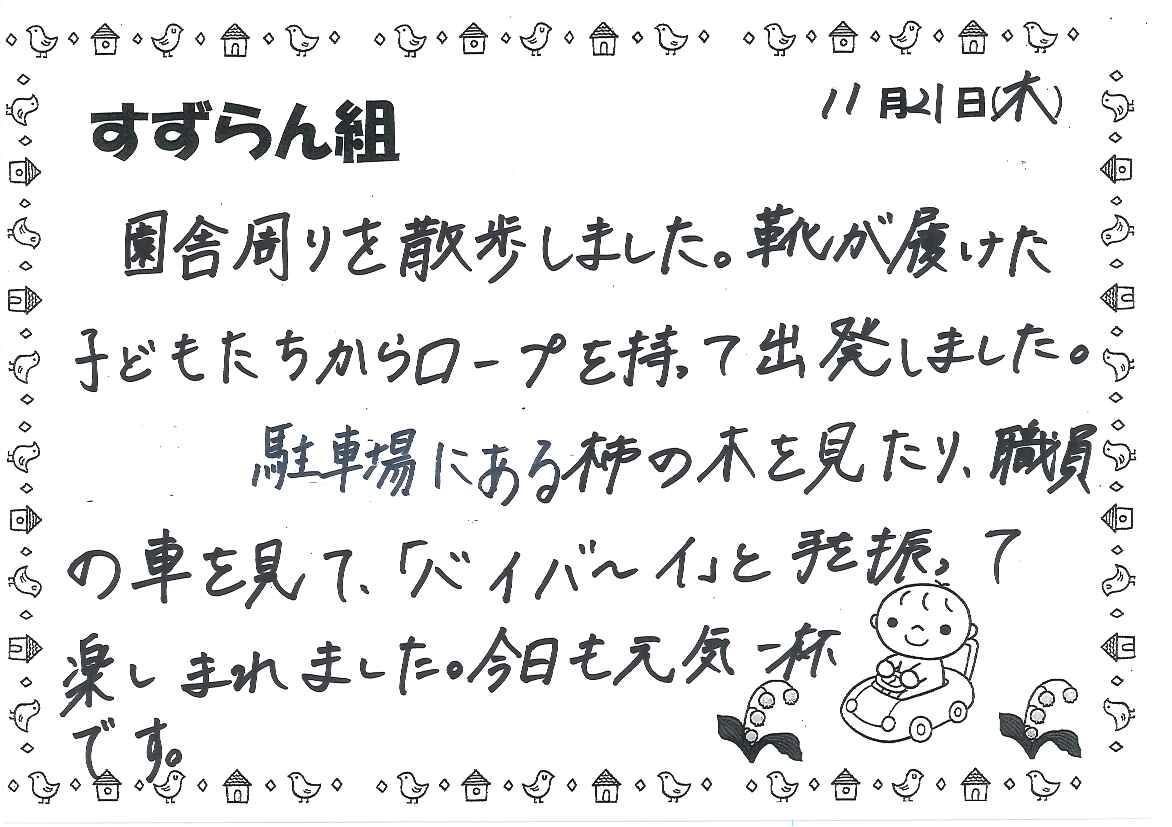 11月21日(木)
すずらん組
園舎周りを散歩しました。靴が履けた
子どもたちからロープを持って出発しました。
駐車場にある柿の木を見たり、職員
の車を見て、「バイバ～イ」と手を振って
楽しまれました。今日も元気一杯
です。